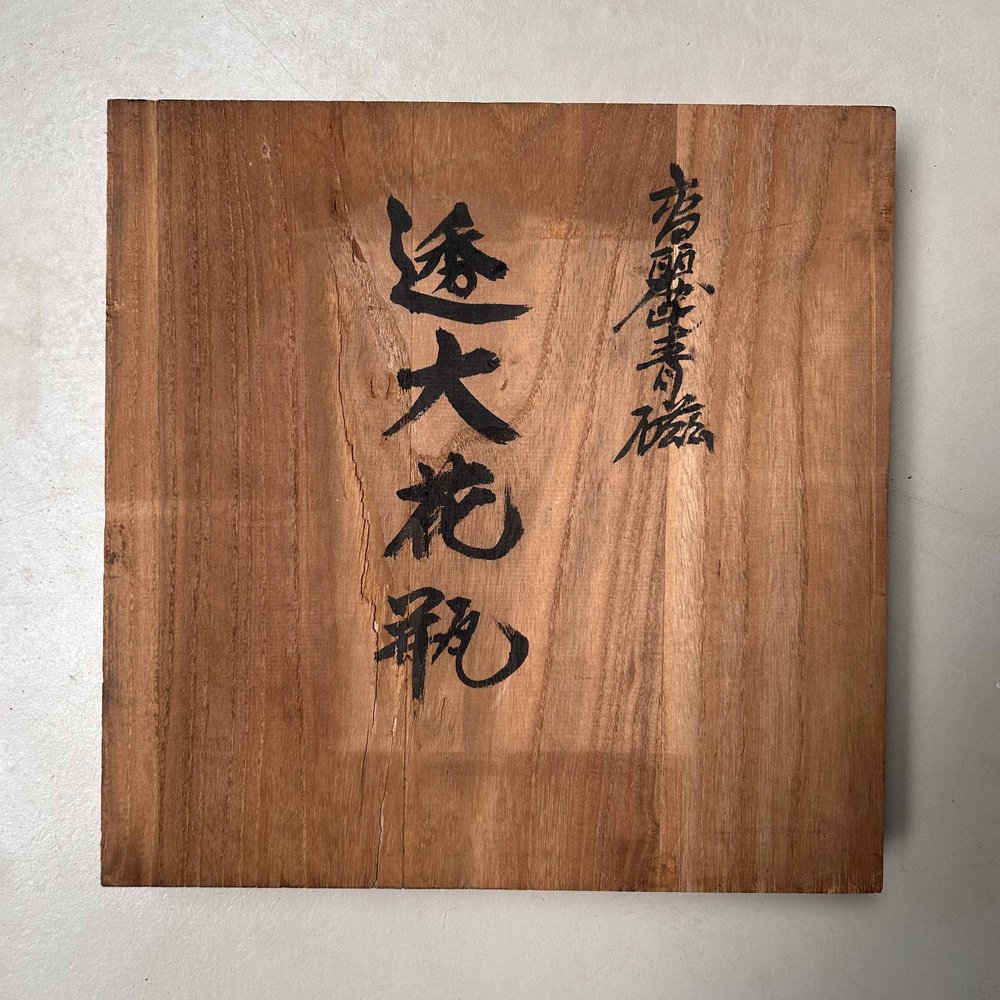 高麗青磁
透大花瓶